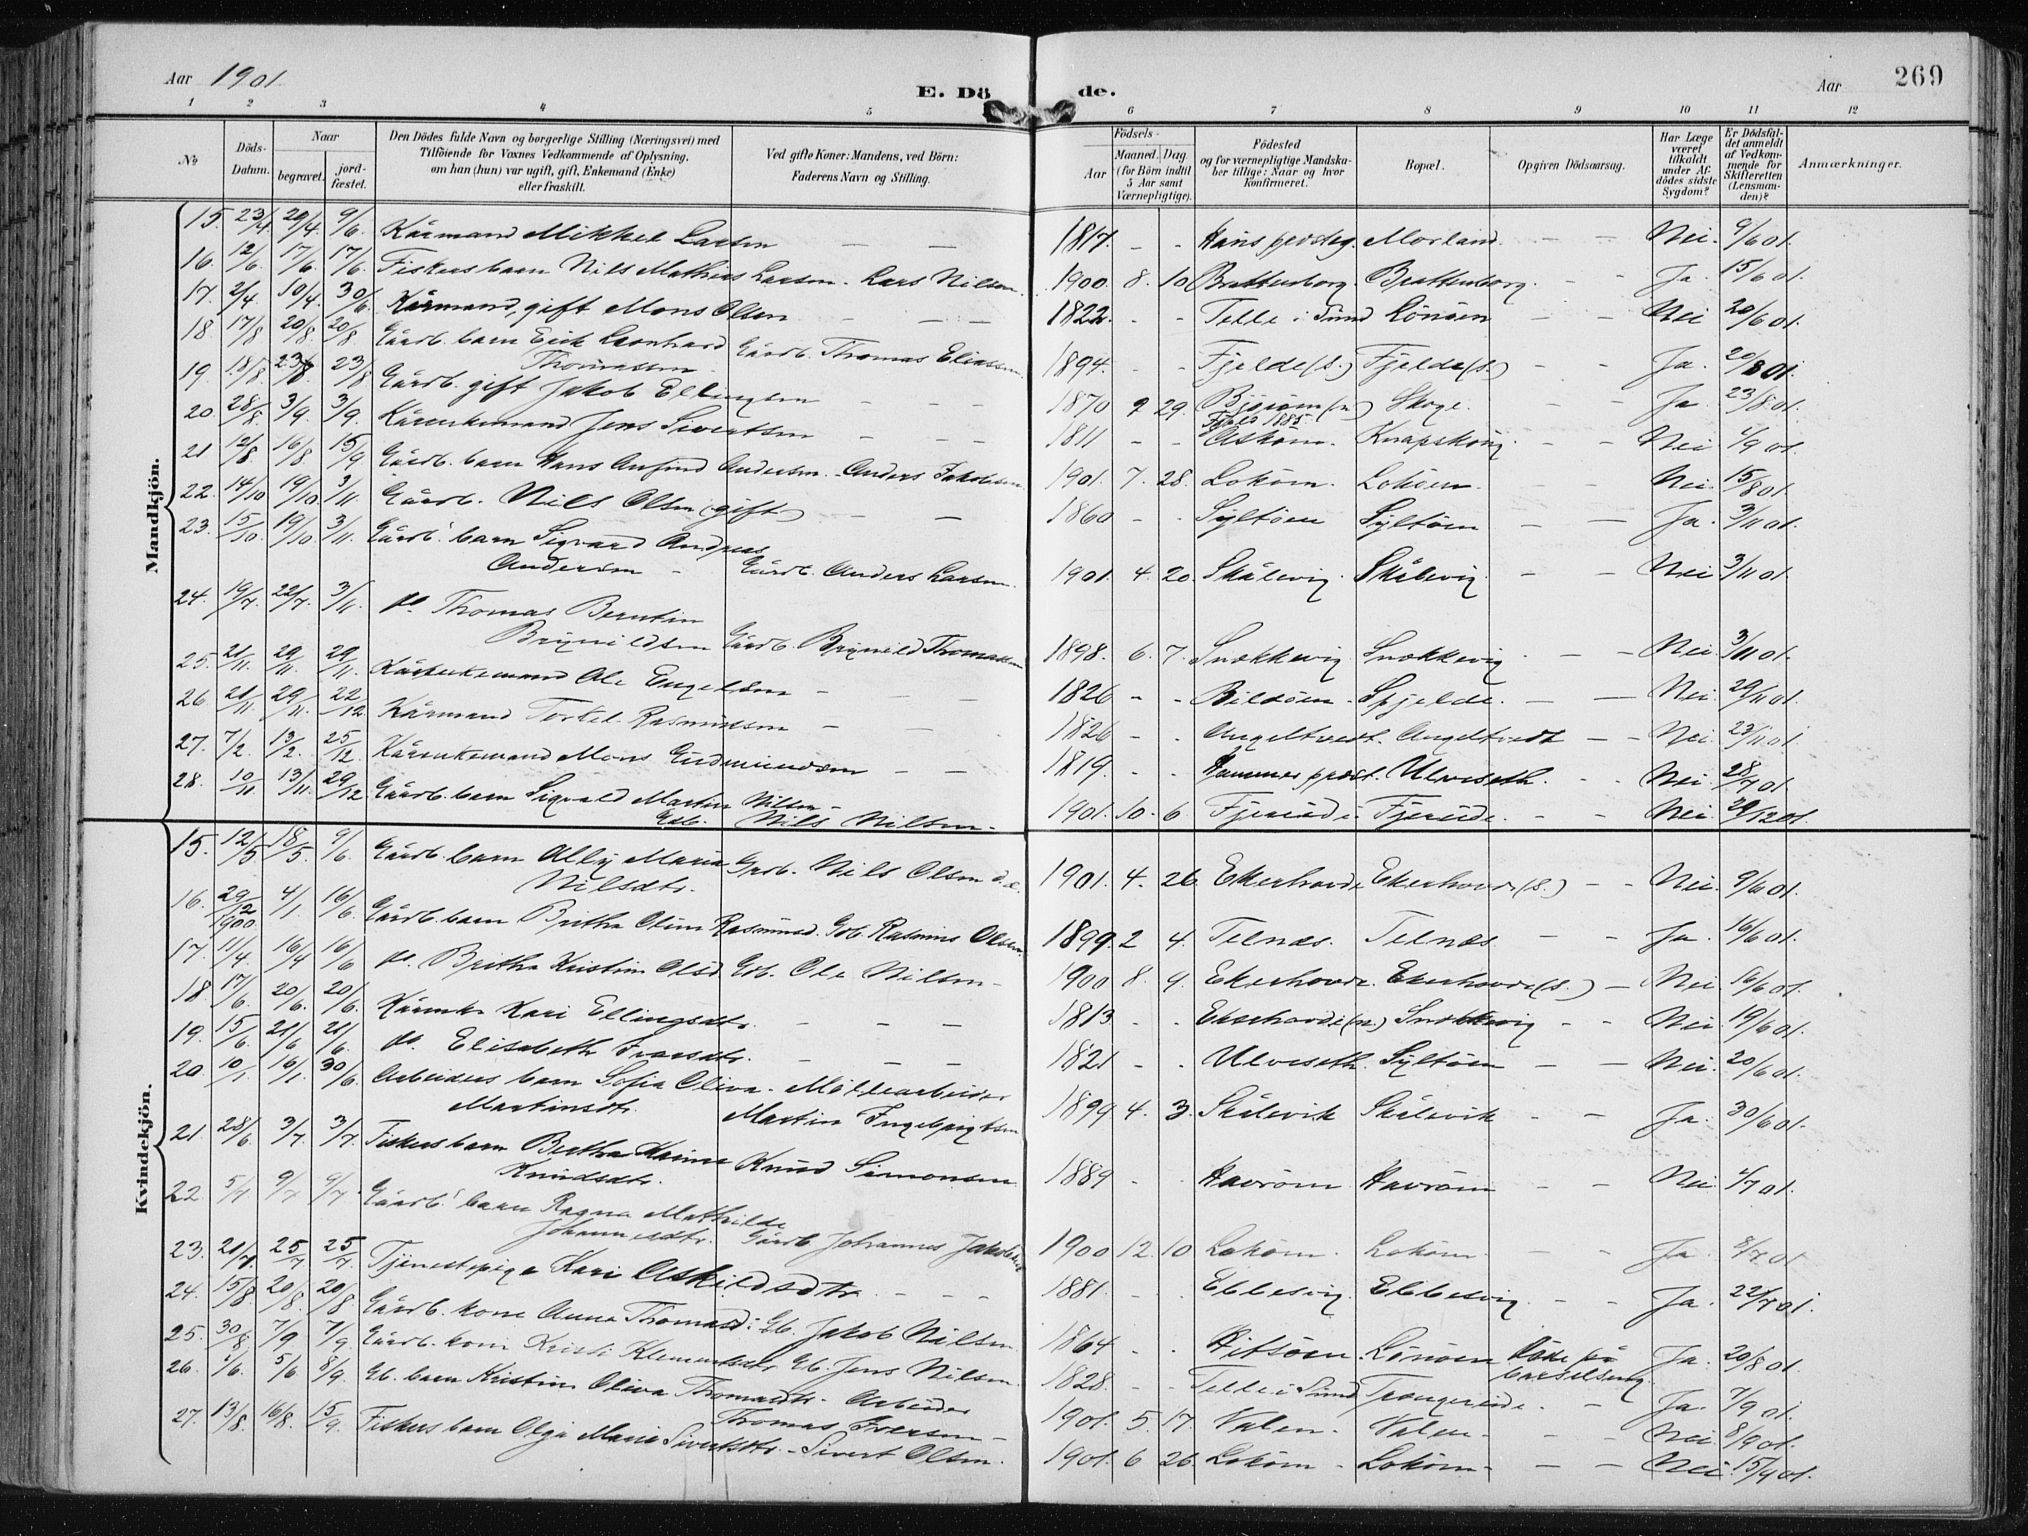 Aar 1901. E. Dö de. Aar 269
1 2 3 4 5 6 7 8 9 10 11 12
No
Döds-Datum.
Naar
begravet.
jord-fæstet.
Den Dödes fulde Navn og borgerlige Stilling (Næringsvei) med
Tilföiende for Voxnes Vedkommende af Oplysning,
om han (hun) var ugift, gift, Enkemand (Enke)
eller fraskilt.
Ved gifte Koner: Mandens, ved Börn:
Faderens Navn og Stilling.
Födsels-
Aar
Maaned. Dag.
(for Börn indtil
5 Aar samt
Værnepligtige).
Födested
og for værnepligtige Mandska-
ber tillige: Naar og hvor
Konfirmeret.
Bopæl.
Opgiven Dödsaarsag.
Har Læge
været
tilkaldt
under Af-
dödes sidste
Sygdom?
Er Dödsfal-
det anmeldt
af Vedkom-
mende for
Skifteretten
(Lensman-
den)?
Anmærkninger.
Mandkjön.
15. 23/4. 20/4. 9/6. Kårmand Mikkel Larsen — — 1817. - - Hans presteg. Morland. - - Nei. 9/6 01.
16. 12/6. 17/6. 17/6. Fiskers barn Nils Mathias Larsen. Lars Nilsen. 1900. 8. 10 Brattenborg. Brattenborg. - Ja. 15/6 01.
17. 2/4. 10/4. 30/6. Kårmand, gift Mons Olsen - - - 1822. - - Telle i Sund Lönöen - - Nei 20/6 01.
18. 17/8. 20/8. 20/8. Gårdb. barn Erik Leonhard
Thomassen Gårdb. Thomas Eliassen. 1894. - - Fjelde (s.) Fjelde (s.) - - Ja. 20/8 01.
19. 18/8. 23/8. 23/8 Gårdb. gift Jakob Ellingsen - - - 1870 9 29. Björöen (n.) Skoge. - Ja. 23/8 01.
Fjeld 1885
20. 28/8. 3/9. 3/9. Kårenkemand Jens Sivertsen - - - 1811 - - Asköen. Knapskog. - - Nei 1/9 01.
21 12/8. 16/8. 15/9. Gårdb. barn Hans Anfind Andersen. Anders Jakobsen 1901. 7. 28. Loköen. Loköen. - - Nei 15/8 01.
22. 14/10 19/10 3/11. Gårdb. Nils Olsen (gift) - - 1860 - - Syltöen Syltöen - - Ja. 3/11 01.
23. 15/10. 19/10. 3/11. Gårdb. barn Sigvard Andreas
Andersen - Gårdb. Anders Larsen. 1901. 4. 20. Skålevig. Skålevig. - - Nei 3/11 01.
24. 19/7. 22/7. 3/11. do Thomas Berntin
Brynildsen Gårdb. Brynild Thomassen 1898. 6. 7. Snekkevig. Snekkevig. - - Nei. 3/11 01.
25. 21/11. 29/11. 29/11. Kårenkemand Ole Engelsen - - - 1826 - - Bildöen. Spjelde. - - Nei. 29/11 01.
26. 21/11. 29/11. 22/12. Kårmand Torkel Rasmussen - - 1826 - - Angeltvedt. Angeltvedt - - Nei. 23/11 01.
27. 7/2. 13/2. 25/12. Kårenkemand Mons Gudmundsen - - 1819. - - Hammer prest. Ulveseth. - - Nei. 28/7 01.
28. 10/11. 13/11. 29/12 Gårdb. barn Sigvald Martin Nilsen -
Gdb. Nils Nilsen. 1901. 10. 6. Fjæreide. Fjæreide. - - Nei. 29/12 01.
Kvindekjön.
15. 12/5 18/5. 9/6. Gårdb. barn Ally Maria
Nilsdtr. Grdb. Nils Olsen 1901. 4. 26. Ekerhovde Ekerhovde (S.) - - Nei. 9/6 01.
16. 29/12 1900. 4/1. 16/6. Gårdb. barn Brytha Oline Rasmusd. Gdb. Rasmus Olsen 1899. 2 4. Telnes. Telnes. - - Ja. 16/6 01.
17. 11/4. 16/4 16/6 do. Britha Kristine Olsd. Gdb. Ole Nilsen - 1900 8. 9. Ekerhovde. Ekerhovde (s.) - Nei. 16/6 01.
18 17/6. 20/6. 20/6. Kårenke Kari Ellingsdtr. - - - 1813 - - Ekerhovde (n.) Snekkevig - - Nei. 19/6 01.
19. 15/6. 21/6 21/6. do. Elisabeth Iversdtr. - - - 1821 - - Ulveseth. Syltöen - - Nei. 20/6 01.
20. 10/1. 16/1. 30/6. Arbeiders barn Sofia Oliva
Martinsdtr. Möllearbeider
Martin Ingebrigtsen 1899 4. 3. Skålevik Skålevik - - Ja. 30/6 01.
21. 28/6. 3/7. 3/7. Fiskers barn Bertha Karine
Knudsdtr. Knud Simonsen 1889 - - Havröen. Havröen - - Nei. 4/7 01.
22. 5/7. 9/7 9/7. Gårdb. barn Ragna Mathilde
Johannesdtr. Gårdb. Johannes Jakobsen 1900 12. 10 Loköen. Loköen. - - Ja. 8/7 01
23. 21/7. 25/7 25/7. Tjenestepige Kari Askildsdtr. - - - 1881. - - Ebbesvig. Ebbesvig. - - Ja. 22/7 01.
24. 15/8 20/8. 20/8 Gårdb. kone Anna Thomasd. Gb. Jakob Nilsen 1864 - - Hitsöen. Lönöen Döde på
barselseng. Ja. 20/8 01.
25. 30/8. 7/9 7/9. Gårdb. kone Kristi Klementsdtr. Gb. Jens Nilsen. 1828. - - Telle i Sund Trangereide. - - Ja. 7/9 01.
26. 1/6. 5/6 8/9. Gb. barn Kristine Oliva Thomasdtr. Arbeider
Thomas Iversen - 1901. 5. 17. Valen. Valen. - - Nei 8/9 01.
27. 13/8. 16/8. 15/9. Fiskers barn Olga Maria Sivertsdtr. - Sivert Olsen. 1901. 6 26. Loköen - Loköen. - - Nei 15/9 01.